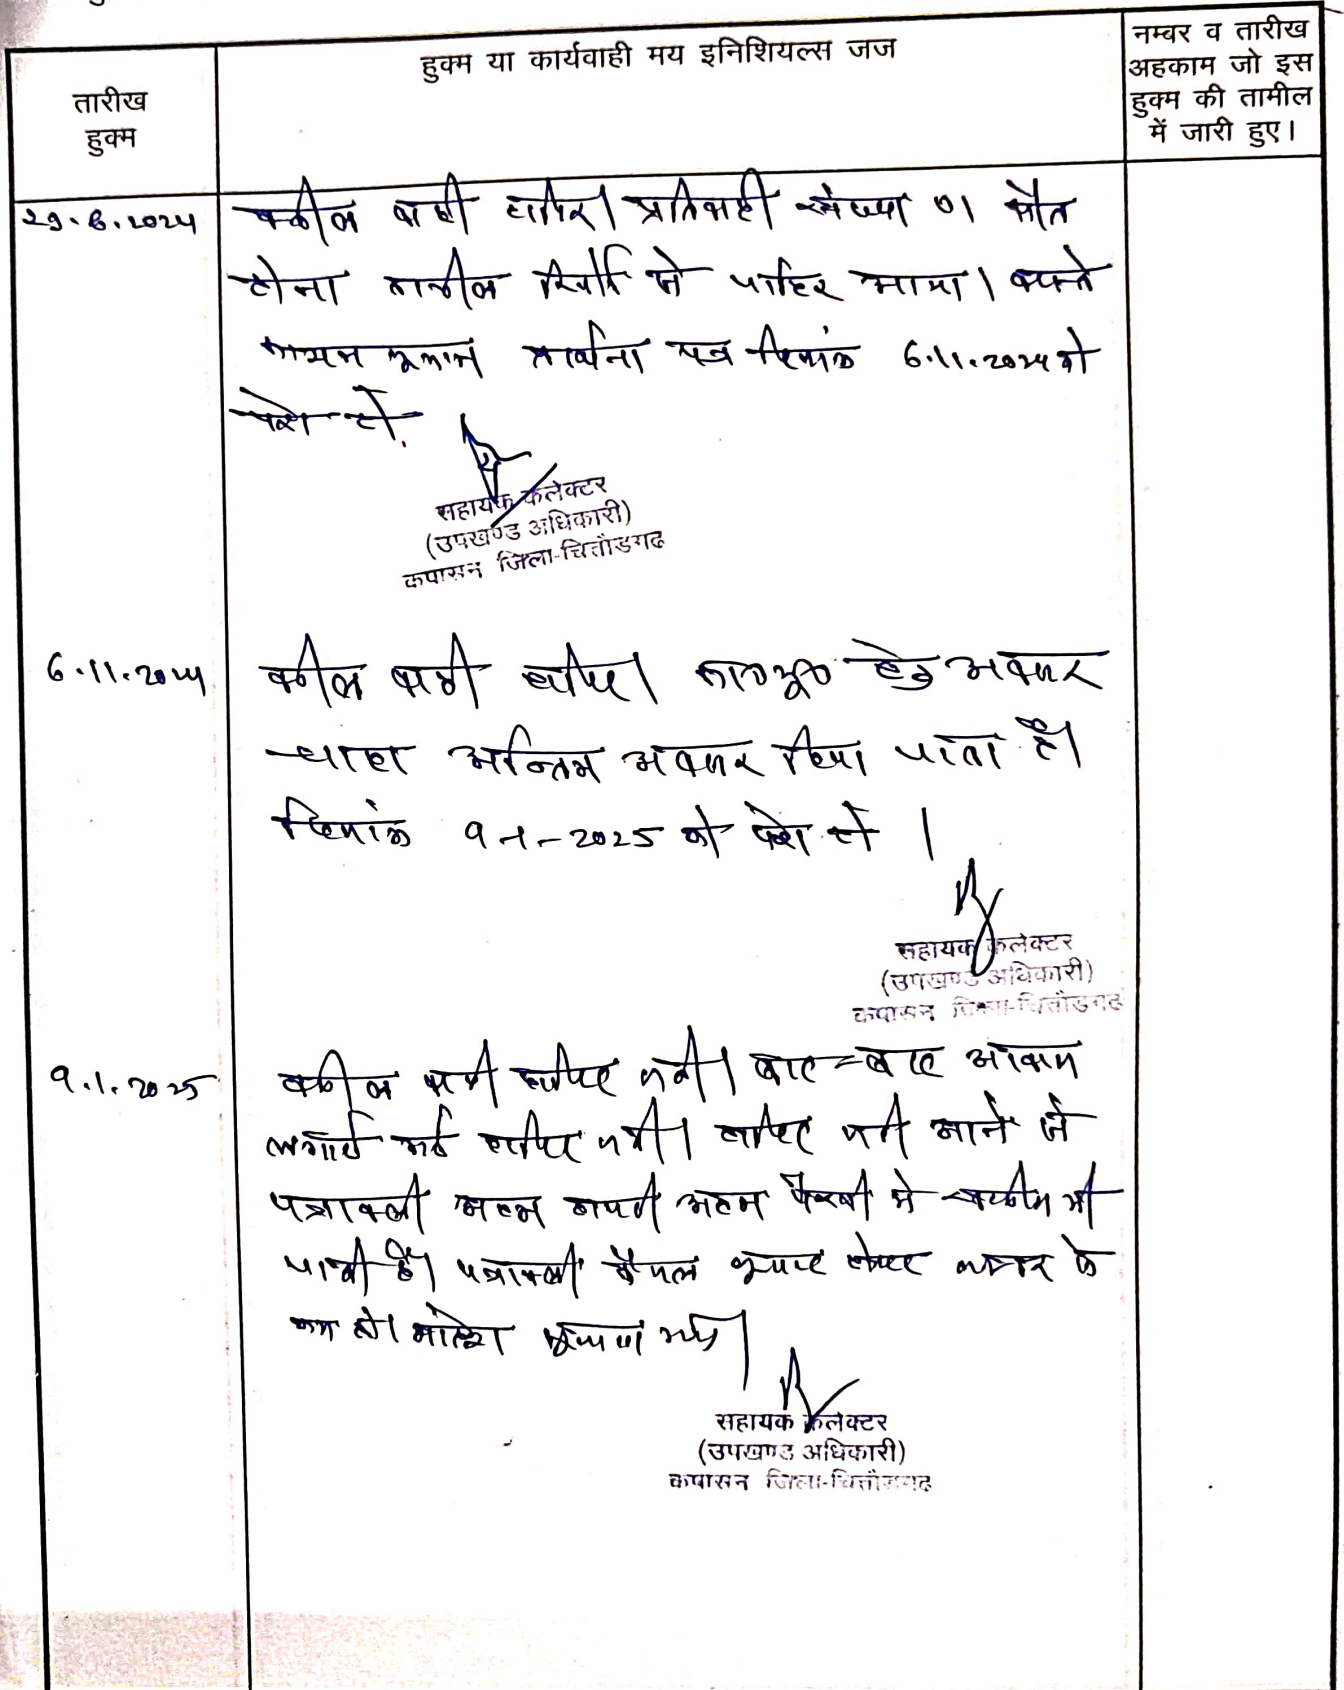 हुक्म या कार्यवाही मय इनिशियल्स जज
तारीख
हुक्म
नम्बर व तारीख
अहकाम जो इस
हुक्म की तामील
में जारी हुए।
29.8.2024
वकील वादी हाजिर। प्रतिवादी संख्या 01 फौत
होना तामील रिपोर्ट से जाहिर आया। वास्ते
कायम मुकाम प्रार्थना पत्र दिनांक 6.11.2024 को
पेश हो.
सहायक कलेक्टर
(उपखण्ड अधिकारी)
कपासन जिला-चित्तौडगढ
6.11.2024
वकील वादी हाजिर। का०मु० हेतु अवसर
चाहा अन्तिम अवसर दिया जाता है।
दिनांक 9-1-2025 को पेश हो।
सहायक कलेक्टर
(उपखण्ड अधिकारी)
कपासन जिला-चित्तौडगढ
9.1.2025
वकील वादी हाजिर नहीं। बार-बार आवाज
लगाई गई हाजिर नहीं। हाजिर नहीं आने से
पत्रावली अदम हाजरी अदम पैरवी में खारीज की
जाती है। पत्रावली फैसल शुमार होकर नम्बर से
कम हो। आदेश सुनाया गया।
सहायक कलेक्टर
(उपखण्ड अधिकारी)
कपासन जिला-चित्तौडगढ